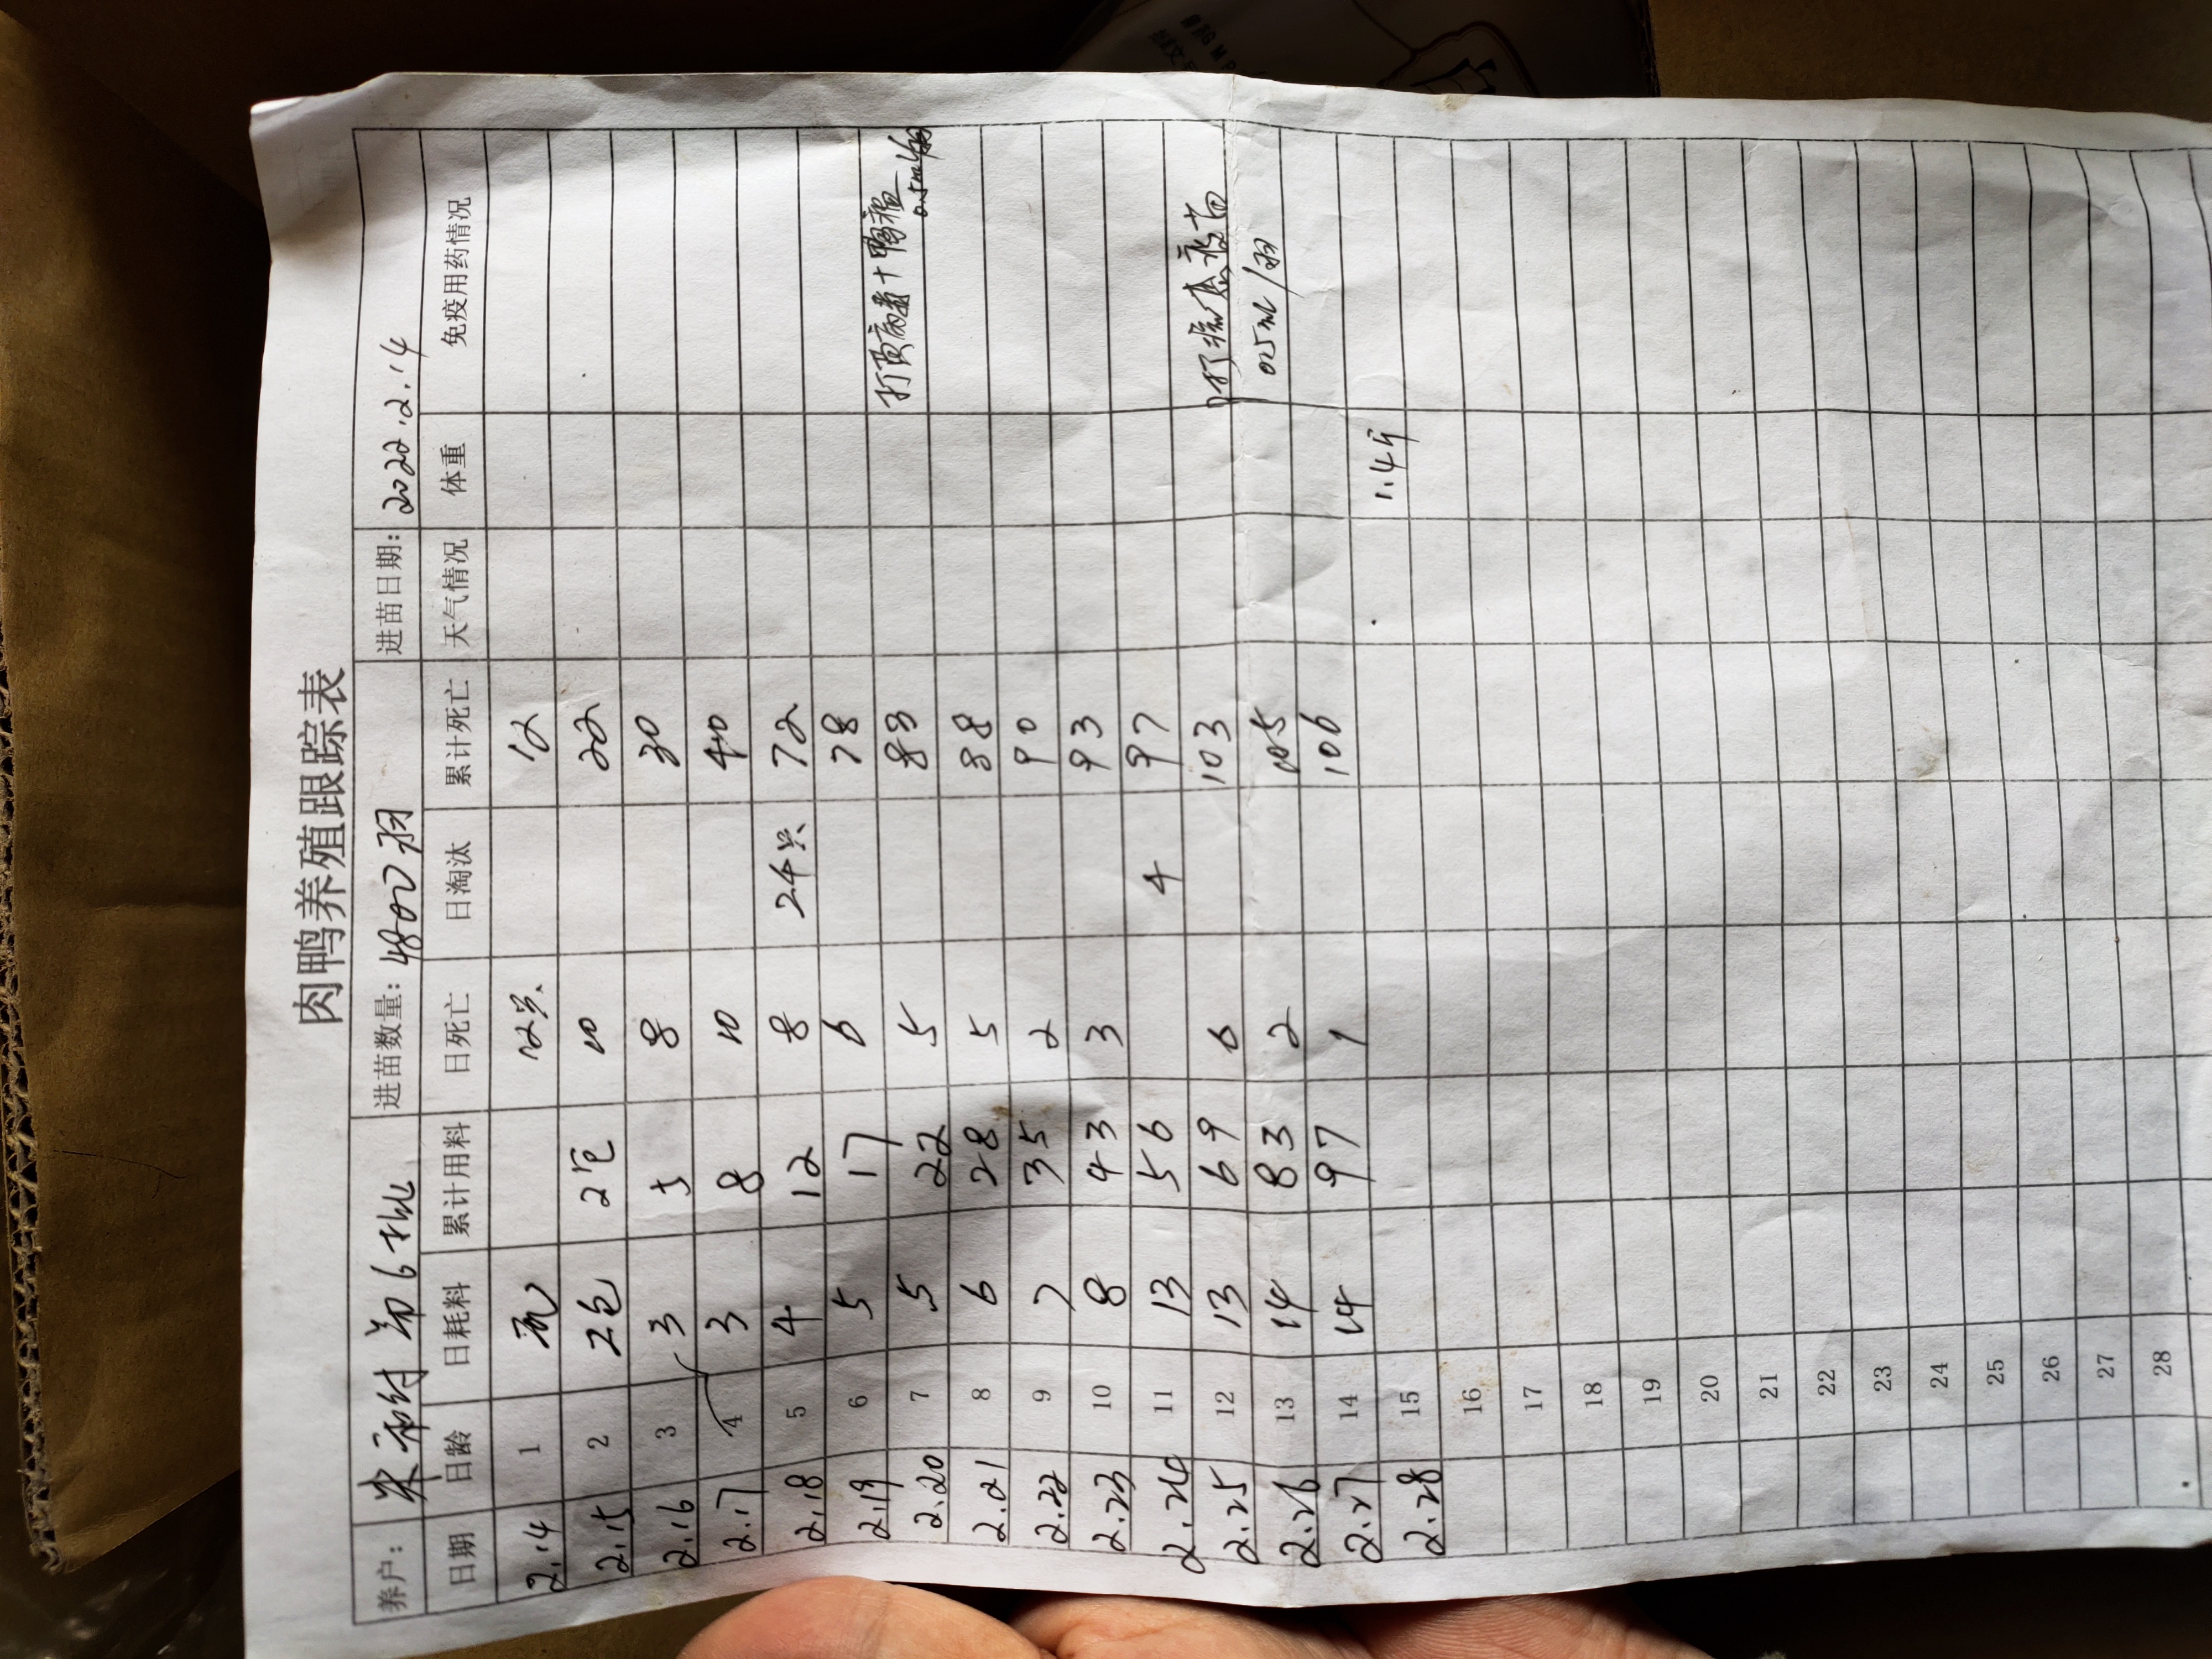 肉鸭养殖跟踪表
养户： 第6批 进苗数量：4800羽 进苗日期：2022.2.14
日期 日龄 日耗料 累计用料 日死亡 日淘汰 累计死亡 天气情况 体重 免疫用药情况
2.14 1 12只 12
2.15 2 2包 2包 10 22
2.16 3 3 5 8 30
2.17 4 3 8 10 40
2.18 5 4 12 8 24只 72
2.19 6 5 17 6 78
2.20 7 5 22 5 83 打 病毒+鸭瘟 0.5ml/羽
2.21 8 6 28 5 88
2.22 9 7 35 2 90
2.23 10 8 43 3 93
2.24 11 13 56 4 97
2.25 12 13 69 6 103 打 疫苗
2.26 13 14 83 2 105 0.5ml/羽
2.27 14 14 97 1 106
2.28 15 1.4斤
16
17
18
19
20
21
22
23
24
25
26
27
28